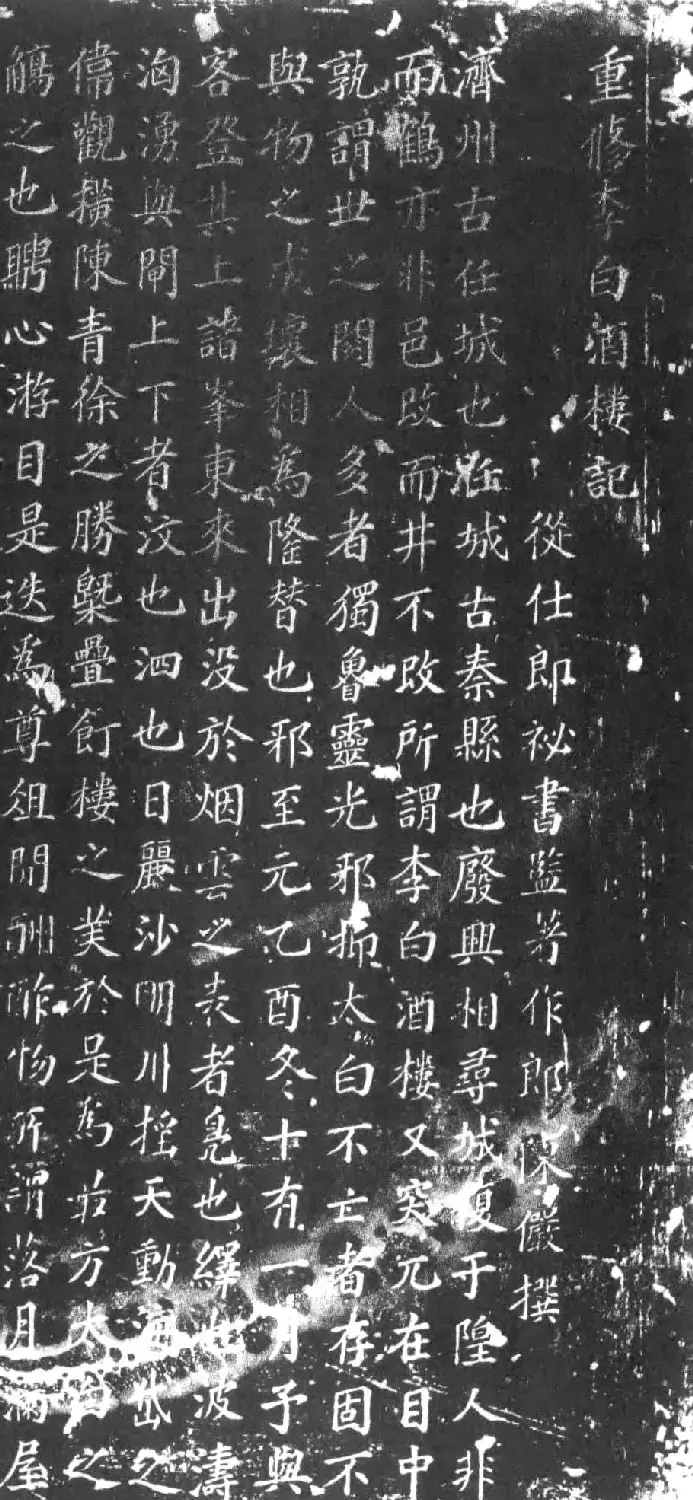 重修李白酒樓記
從仕郎祕書監著作郎陳儼撰
濟州古任城也任城古秦縣也廢興相尋城復于隍人非
而鶴亦非邑改而井不改所謂李白酒樓又突兀在目中
孰謂世之閱人多者獨魯靈光邪抑太白不亡者存固不
與物之成壞相為隆替也邪至元乙酉冬十有一月予與
客登其上諸峯東來出没於烟雲之表者鳧也繹也波濤
洶湧與閘上下者汶也泗也日麗沙明川揺天動海岱之
偉觀攟陳青徐之勝槩疊飣樓之美於是為壯方太白之
觴之也騁心游目是迭為尊俎間酬酢怳所謂落月滿屋